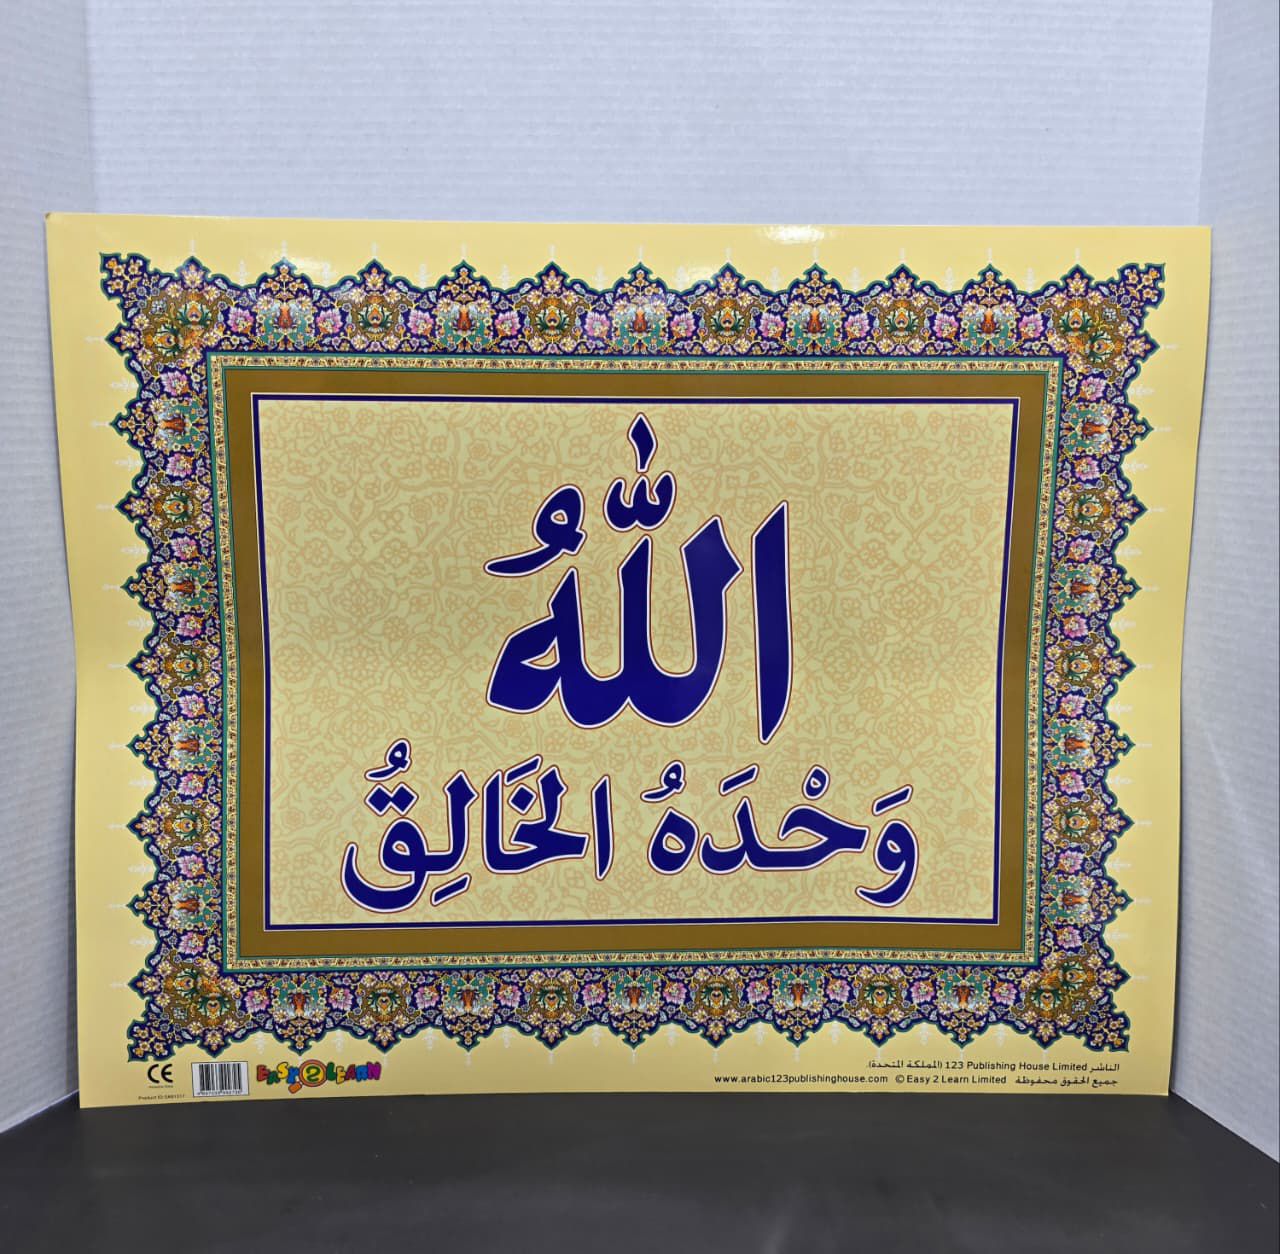 اللّٰهُ
وَحْدَهُ الخَالِقُ
CE
EASY 2 LEARN
الناشر 123 Publishing House Limited (المملكة المتحدة).
www.arabic123publishinghouse.com © Easy 2 Learn Limited جميع الحقوق محفوظة